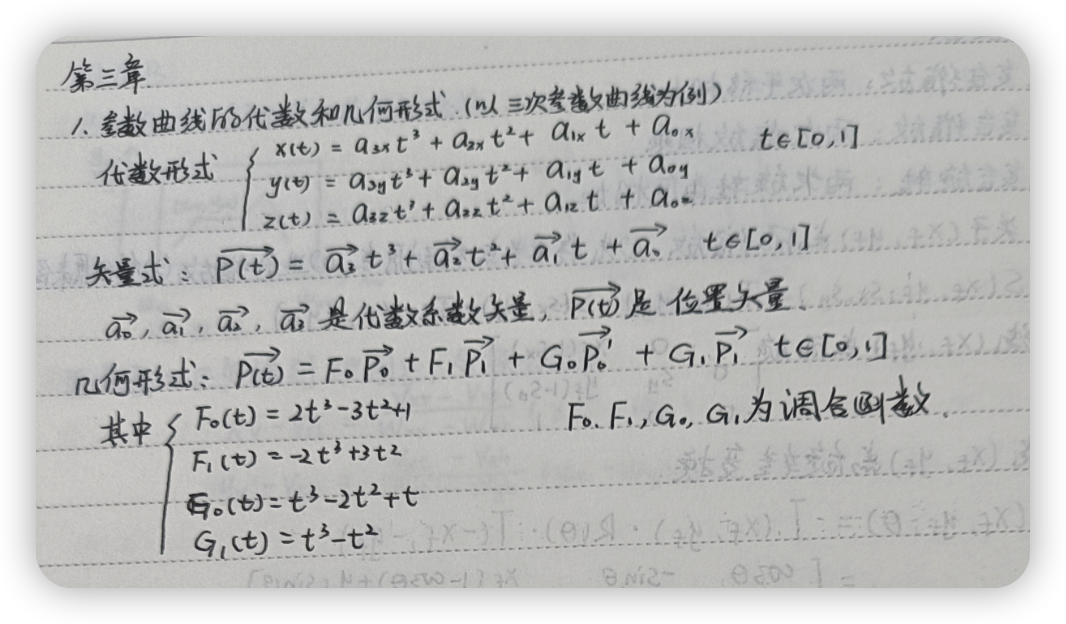 第三章
1. 参数曲线的代数和几何形式 (以三次参数曲线为例)
代数形式 { x(t) = a₃ₓt³ + a₂ₓt² + a₁ₓt + a₀ₓ t∈[0,1]
y(t) = a₃yt³ + a₂yt² + a₁yt + a₀y
z(t) = a₃zt³ + a₂zt² + a₁zt + a₀z
矢量式: P(t)⃗ = a₃⃗t³ + a₂⃗t² + a₁⃗t + a₀⃗ t∈[0,1]
a₀⃗, a₁⃗, a₂⃗, a₃⃗ 是代数系数矢量, P(t)⃗ 是位置矢量.
几何形式: P(t)⃗ = F₀P₀⃗ + F₁P₁⃗ + G₀P₀⃗' + G₁P₁⃗' t∈[0,1]
其中 { F₀(t) = 2t³-3t²+1 F₀, F₁, G₀, G₁为调合函数.
F₁(t) = -2t³+3t²
G₀(t) = t³-2t²+t
G₁(t) = t³-t²